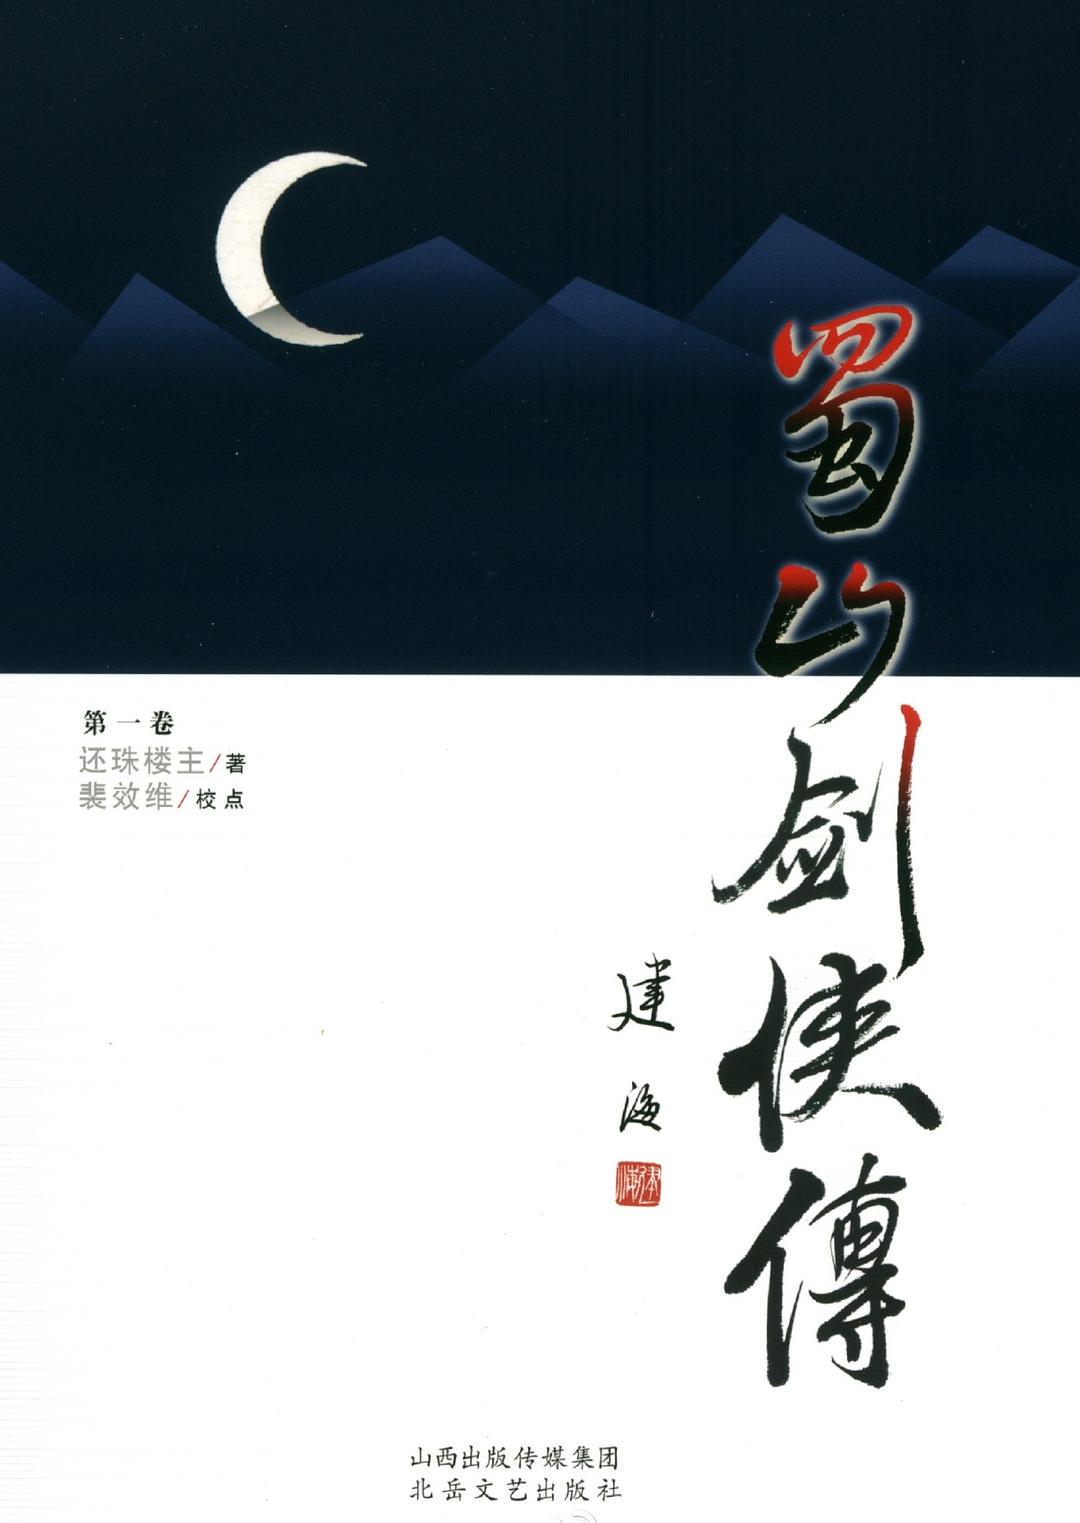 蜀山剑侠傳
建海
第一卷
还珠楼主/著
裴效维/校点
山西出版传媒集团
北岳文艺出版社